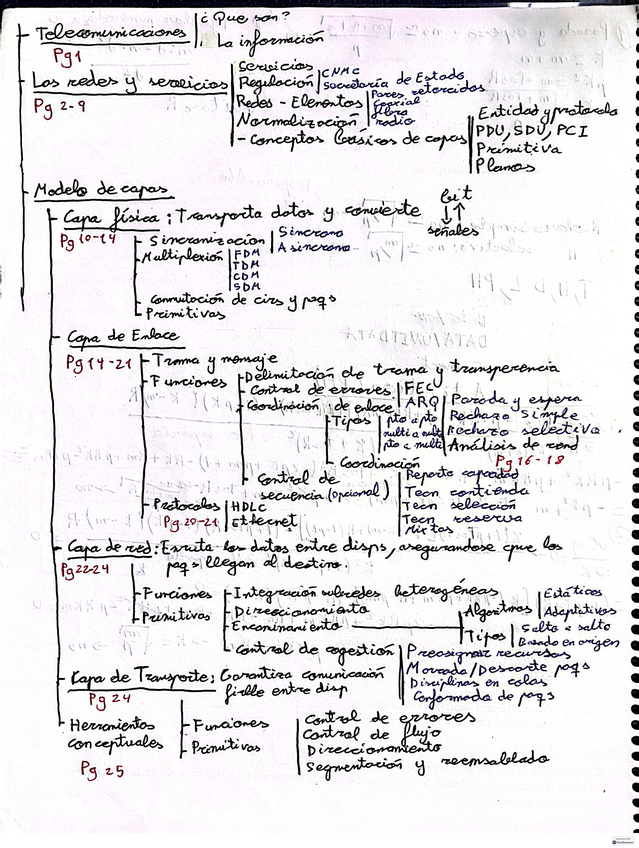 Telecomunicaciones
¿Que son?
La información
Pg 1
Las redes y servicios
Pg 2-9
Servicios
Regulación
CNMC
Secretaría de Estado
Redes - Elementos
Pares retorcidos
Coaxial
fibra
radio
Normalización
- Conceptos básicos de capas
Entidad y protocolo
PDU, SDU, PCI
Primitiva
Planos
Modelo de capas
Capa física: Transporta datos y convierte
bit
señales
Pg 10-14
Sincronización
Sincrono
Asincrono
Multiplexión
FDM
TDM
CDM
SDM
Conmutación de circs y paqs
Primitivas
Capa de Enlace
Pg 14-21
Trama y mensaje
Funciones
Delimitación de trama y transparencia
Control de errores
FEC
ARQ
Parada y espera
Rechazo simple
Rechazo selectivo
Análisis de rend
Pg 16-18
Coordinación de enlace
Tipos
pto a pto
multi a multi
pto a multi
Coordinación
Reparto capacidad
Tecn contienda
Tecn selección
Tecn reserva
Mixtas
Control de
secuencia (opcional)
Protocolos
HDLC
Ethernet
Pg 20-21
Capa de red: Enruta los datos entre disps, asegurandose que los
paqs llegan al destino.
Pg 22-24
Funciones
Integración subredes heterogéneas
Direccionamiento
Encaminamiento
Algoritmos
Estáticos
Adaptativos
Tipos
Salto a salto
Basado en origen
Control de cogestión
Preasignar recursos
Morcada/Descarte paqs
Disciplinas en colas
Conformado de paqs
Primitivas
Capa de Transporte: Garantiza comunicación
fiable entre disp
Pg 24
Funciones
Primitivas
Control de errores
Control de flujo
Direccionamiento
Segmentación y reensablado
Herramientas
conceptuales
Pg 25